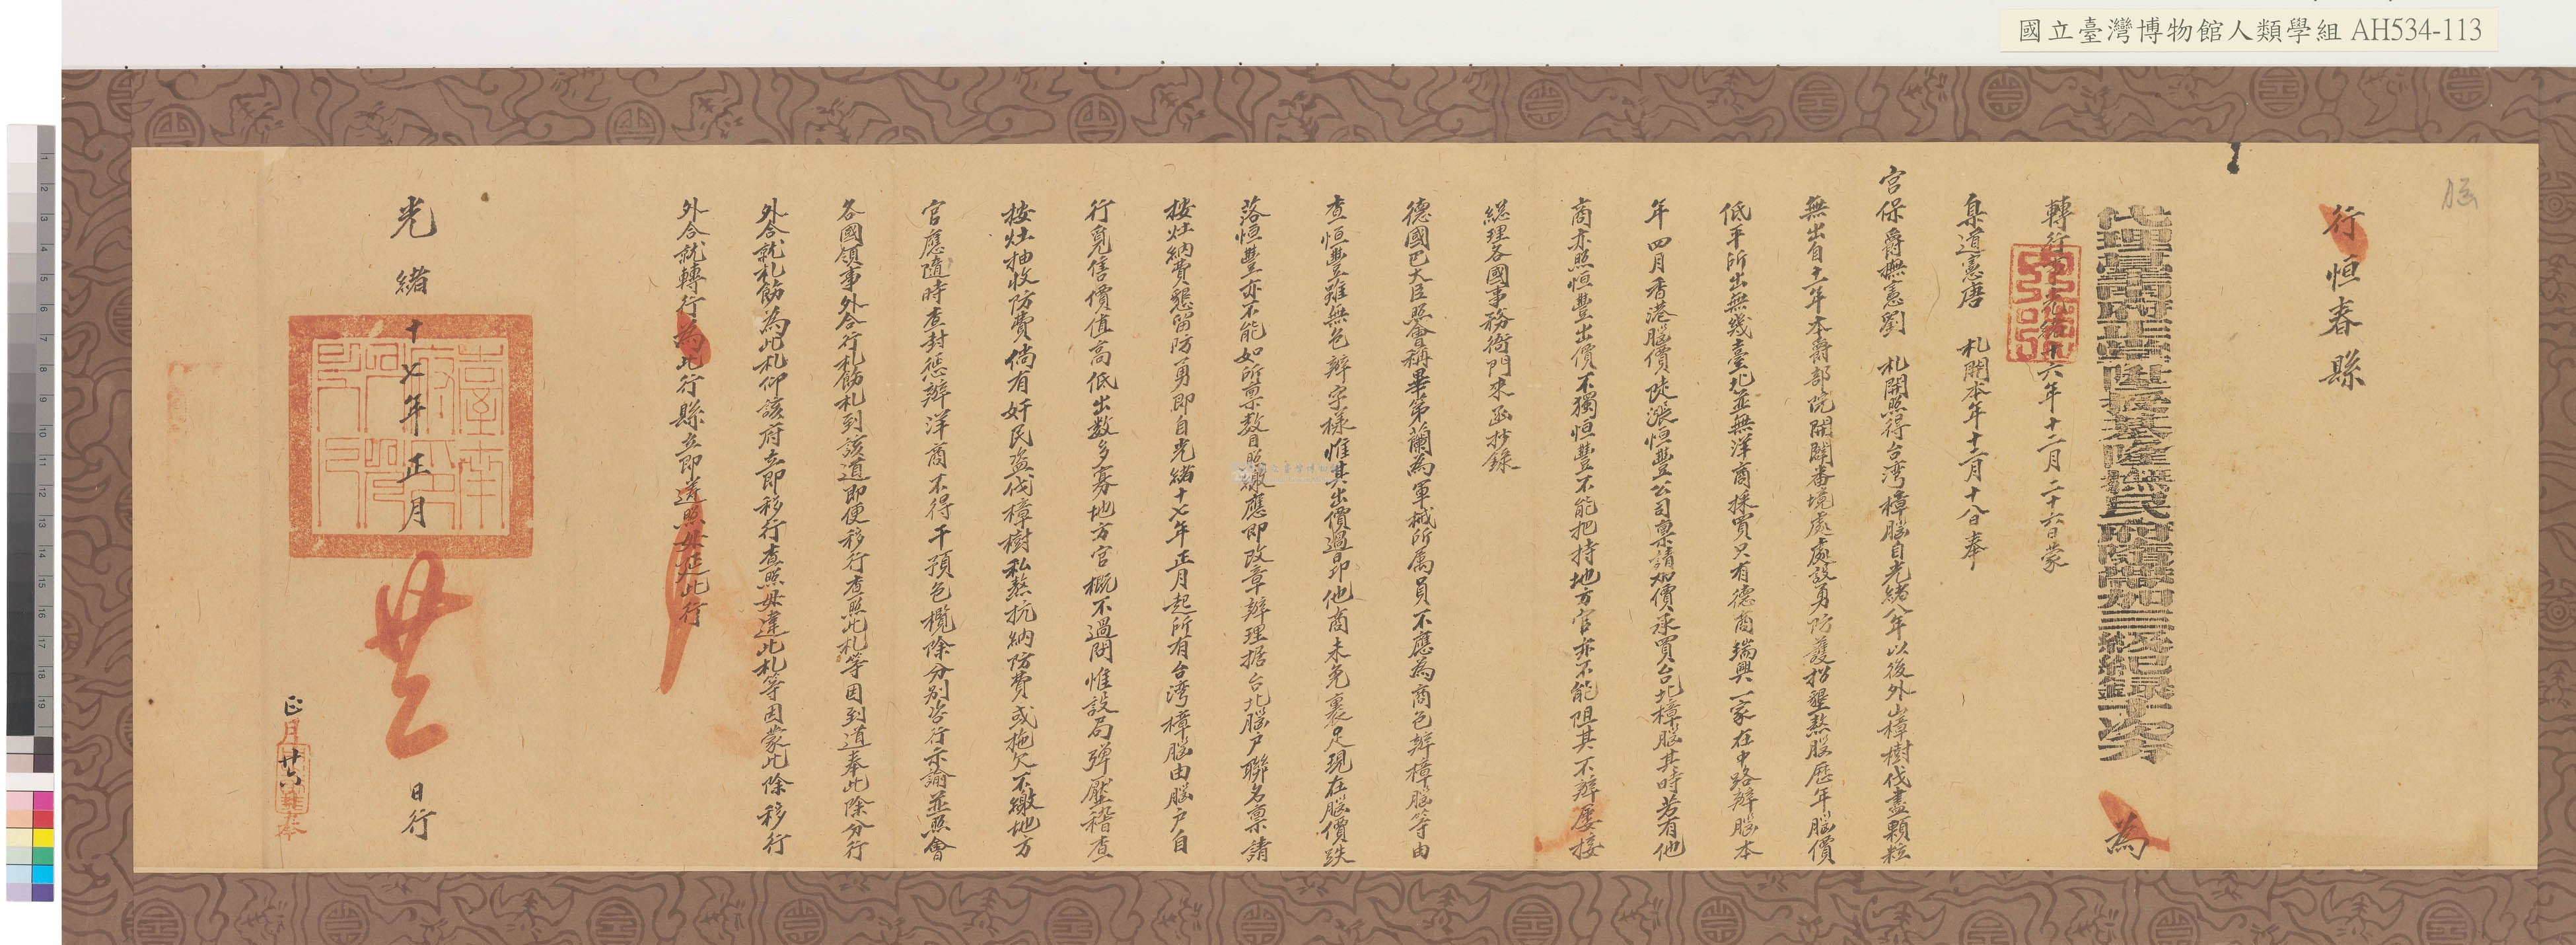 國立臺灣博物館人類學組 AH534-113
腦
行恒春縣
代理臺南府正堂陞授基隆撫民府隨帶加三級紀錄十次方 為
轉行事光緒十六年十二月二十六日蒙
臬道憲唐 札開本年十二月十八日奉
宮保爵撫憲劉 札開照得台湾樟腦自光緒八年以後外山樟樹伐盡顆粒
無出自十二年本爵部院開闢番境處處設勇防護招墾熬腦歷年腦價
低平所出無幾臺北並無洋商採買只有德商瑞興一家在中路辦腦本
年四月香港腦價陡漲恒豐公司稟請加價承買台北樟腦其時若有他
商亦照恒豐出價不獨恒豐不能把持地方官亦不能阻其不辦屢接
總理各國事務衙門來函抄錄
德國巴大臣照會稱畢第蘭為軍械所属員不應為商包辦樟腦等由
查恒豐雖無包辦字樣惟其出價過昂他商未免裹足現在腦價跌
落恒豐亦不能如所稟數目照繳應即改章辦理据台北腦户聯名稟請
按灶納費懇留防勇即自光緒十七年正月起所有台湾樟腦由腦户自
行覓售價值高低出数多寡地方官概不過問惟設局彈壓稽查
按灶抽收防費倘有奸民盗伐樟樹私熬抗納防費或拖欠不繳地方
官應隨時查封懲辦洋商不得干預包攬除分别咨行示諭並照會
各國領事外合行札飭札到該道即便移行查照此札等因到道奉此除分行
外合就札飭為此札仰該府立即移行查照毋違此札等因蒙此除移行
外合就轉行為此行縣立即遵照毋延此行
光緒十七年正月 日行
正月廿六